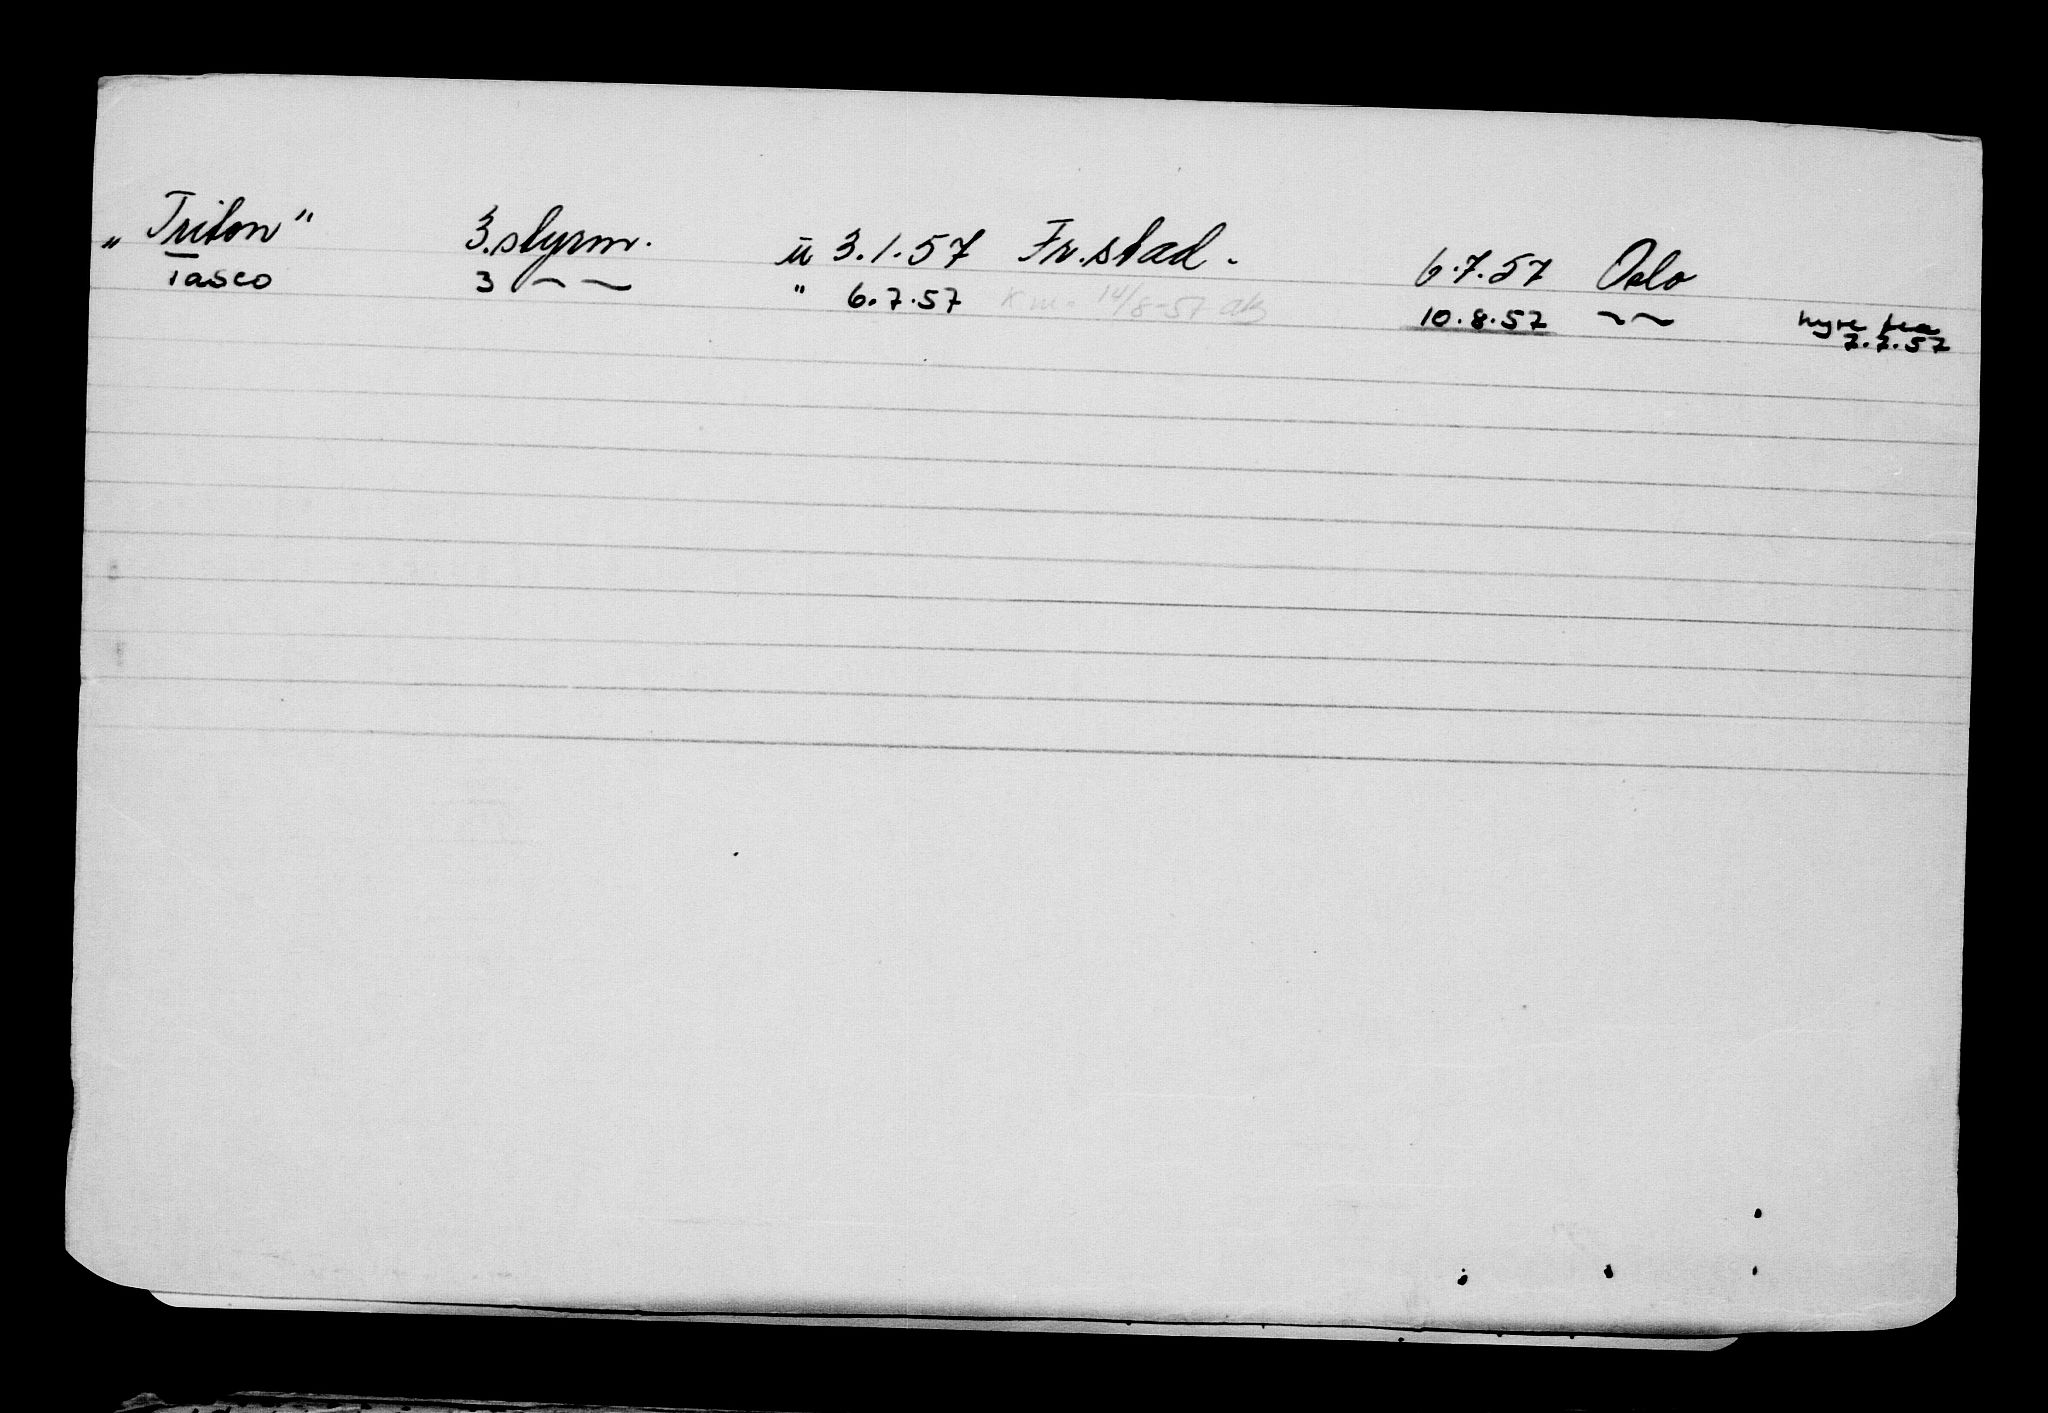 „Triton" 3.styrm. ü 3.1.57 Fr.stad. 6.7.57 Oslo
Tasco 3 ~ ~ " 6.7.57 14/8-57 10.8.57 ~~ hyre fra
7.7.57